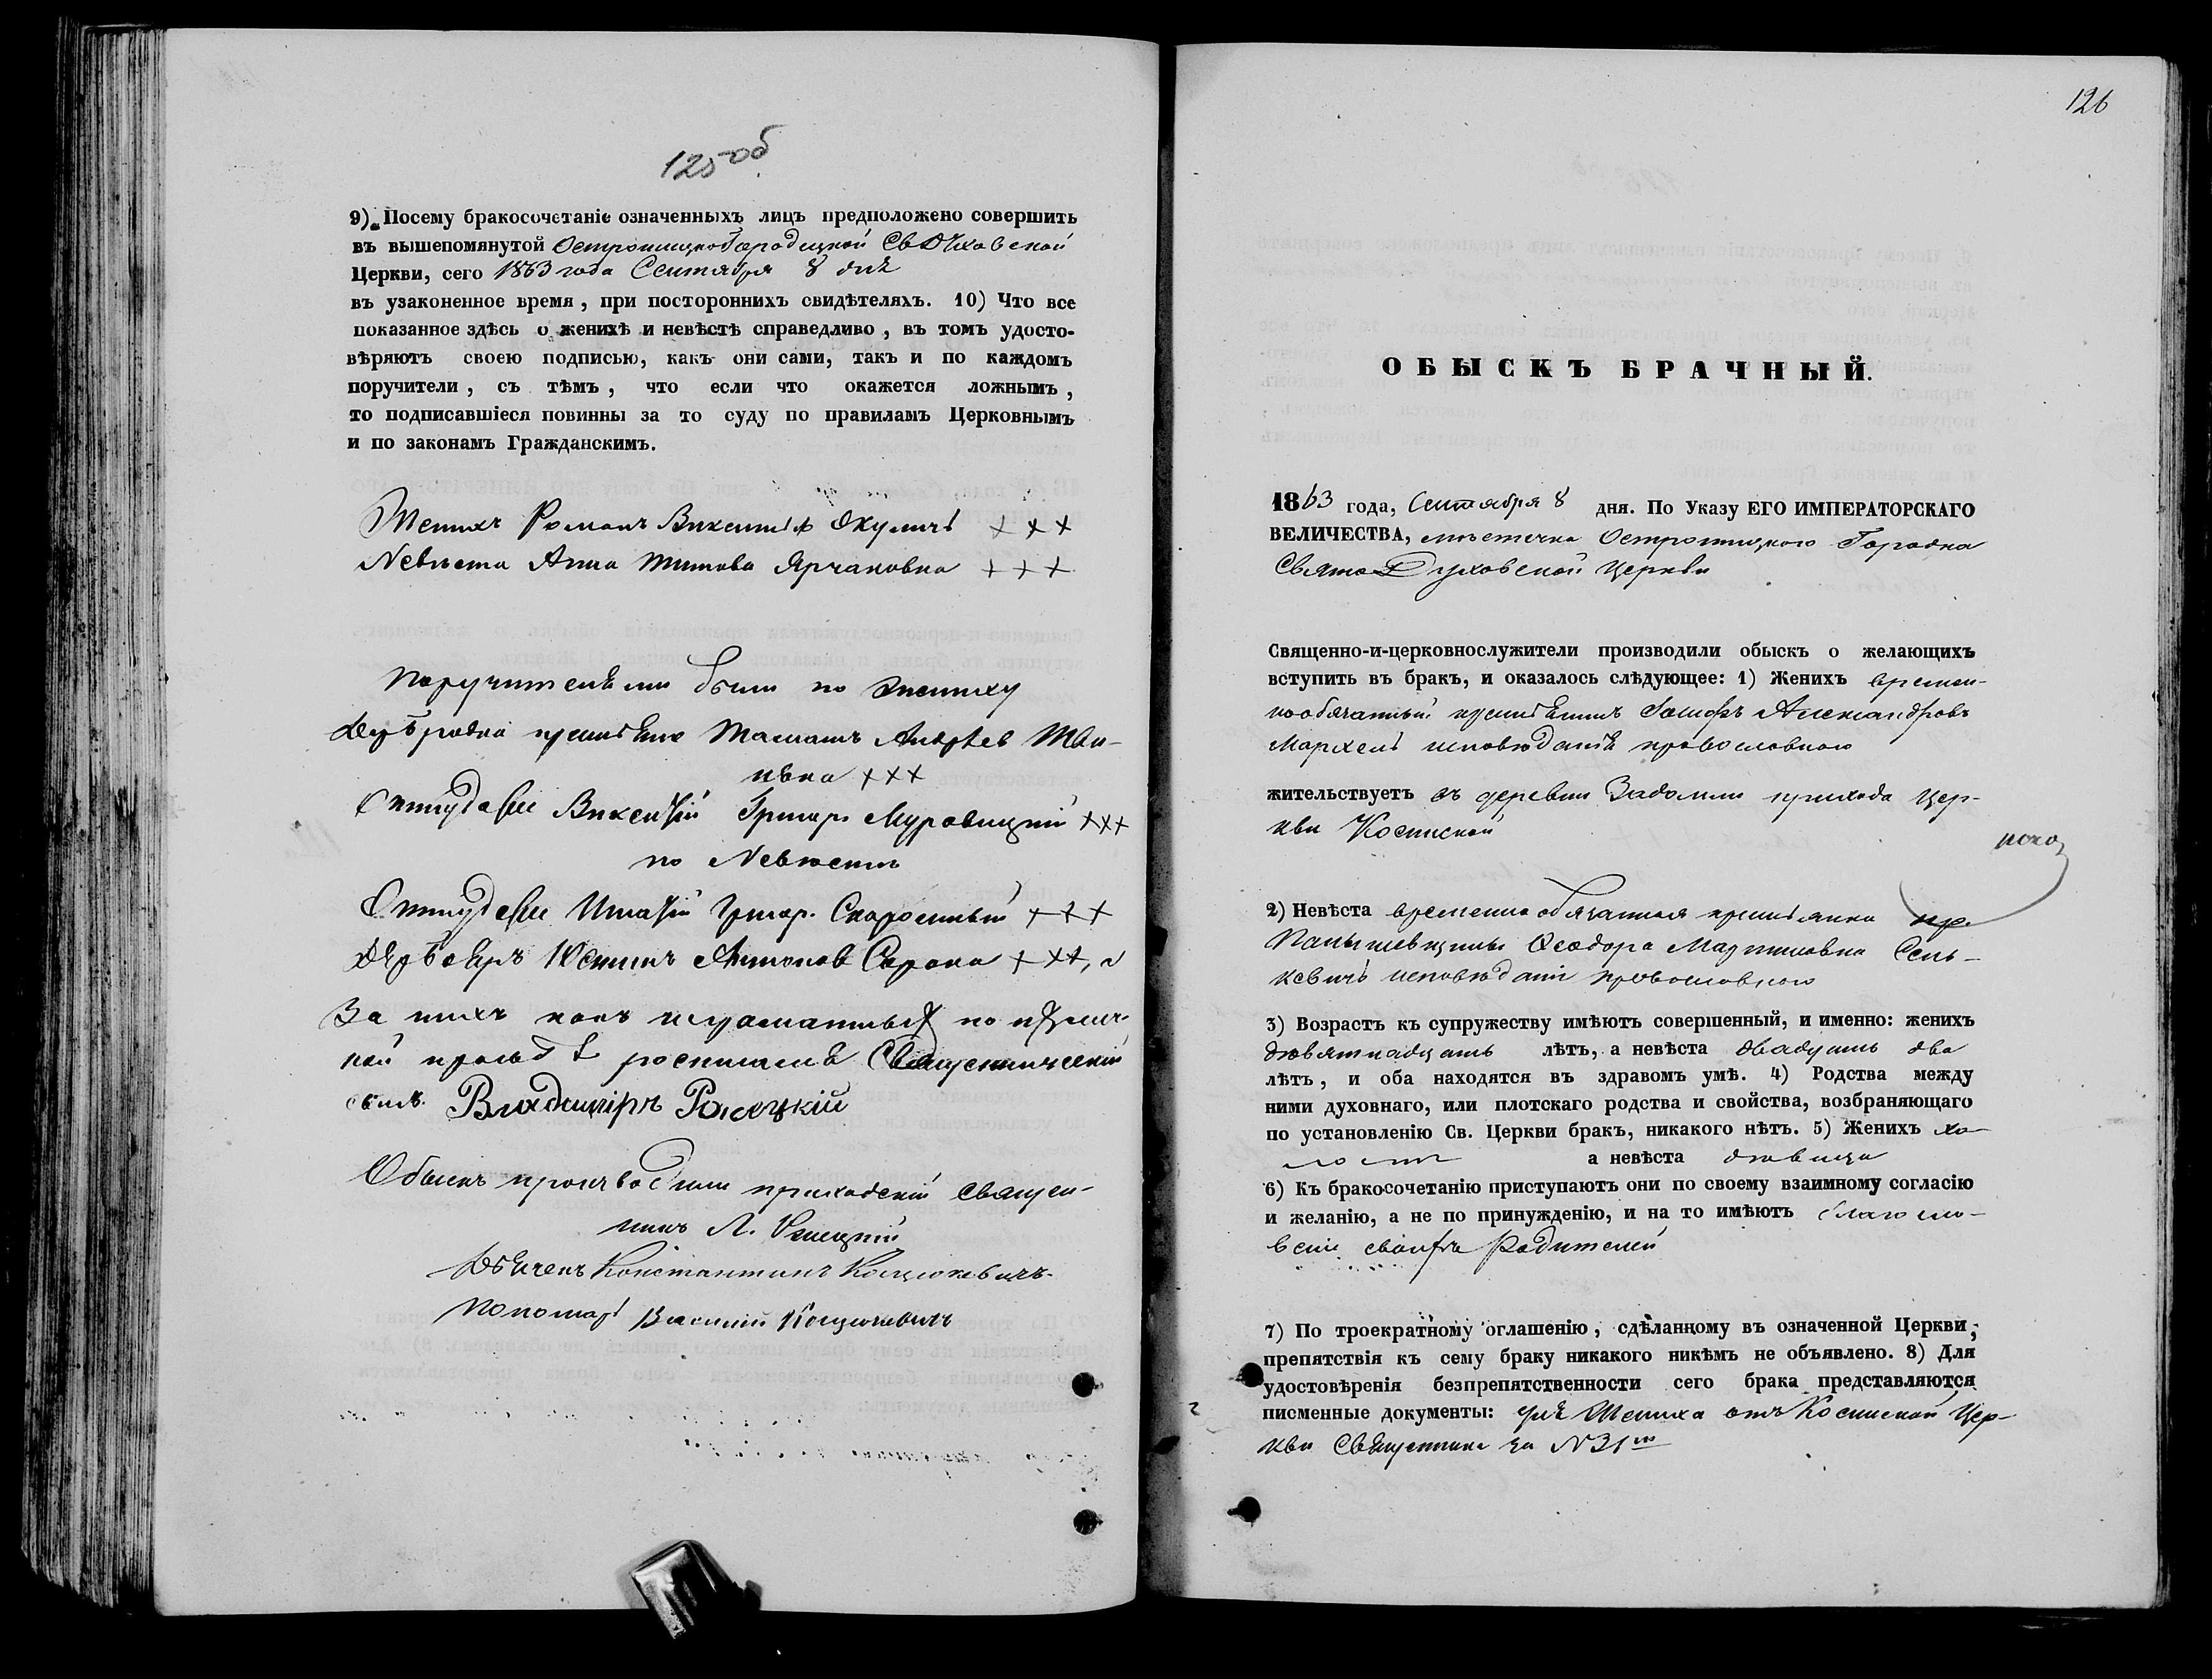 125 об.
9) Посему бракосочетаніе означенныхъ лицъ предположено совершить
въ вышепомянутой Острошицко Городецкой Св Духовской
Церкви, сего 1863 года Сентября 8 дня
въ узаконенное время, при постороннихъ свидѣтеляхъ. 10) Что все
показанное здѣсь о женихѣ и невѣстѣ справедливо, въ томъ удосто-
вѣряютъ своею подписью, какъ они сами, такъ и по каждомъ
поручители, съ тѣмъ, что если что окажется ложнымъ,
то подписавшіеся повинны за то суду по правиламъ Церковнымъ
и по законамъ Гражданскимъ.
Женихъ Романъ Викентіев Окуличъ +++
Невѣста Анна Титова +++
Поручителями были по Жениху
Андрѣев
+++
Викентій Григор. +++
по Невѣстѣ
Игнатій Григор. +++
Юстинъ Антонов Сорока +++, а
За нихъ какъ неграматныхъ по их лич-
ной прозьбѣ росписался Священническій
сынъ Владиміръ
Обыскъ производили приходскій священ-
никъ Л.
Дьячекъ Константинъ
Пономарь Василій
126
ОБЫСКЪ БРАЧНЫЙ.
1863 года, Сентября 8 дня. По Указу ЕГО ИМПЕРАТОРСКАГО
ВЕЛИЧЕСТВА, мѣстечка Острошицкого Городка
Свято Духовской Церкви
Священно-и-церковнослужители производили обыскъ о желающихъ
вступить въ бракъ, и оказалось слѣдующее: 1) Женихъ времен-
нообязанный крестьянинъ Іосифъ Александровъ
Мархель исповѣданія православного
жительствуетъ въ деревни Задомли прихода Цер-
кви Косинской
2) Невѣста временно обязанная крестьянка
Паньшевщины Ѳеодора Мартиновна Сень-
кевичъ исповѣданія православного
3) Возрастъ къ супружеству имѣютъ совершенный, и именно: женихъ
дѣвятнадцать лѣтъ, а невѣста двадцать два
лѣтъ, и оба находятся въ здравомъ умѣ. 4) Родства между
ними духовнаго, или плотскаго родства и свойства, возбраняющаго
по установленію Св. Церкви бракъ, никакого нѣтъ. 5) Женихъ хо-
лостъ а невѣста дѣвица
6) Къ бракосочетанію приступаютъ они по своему взаимному согласію
и желанію, а не по принужденію, и на то имѣютъ благосло-
веніе своихъ Родителей
7) По троекратному оглашенію, сдѣланному въ означенной Церкви,
препятствія къ сему браку никакого никѣмъ не объявлено. 8) Для
удостовѣренія безпрепятственности сего брака представляются
писменные документы: для Жениха отъ Косинской Цер-
кви Священника за N 31м